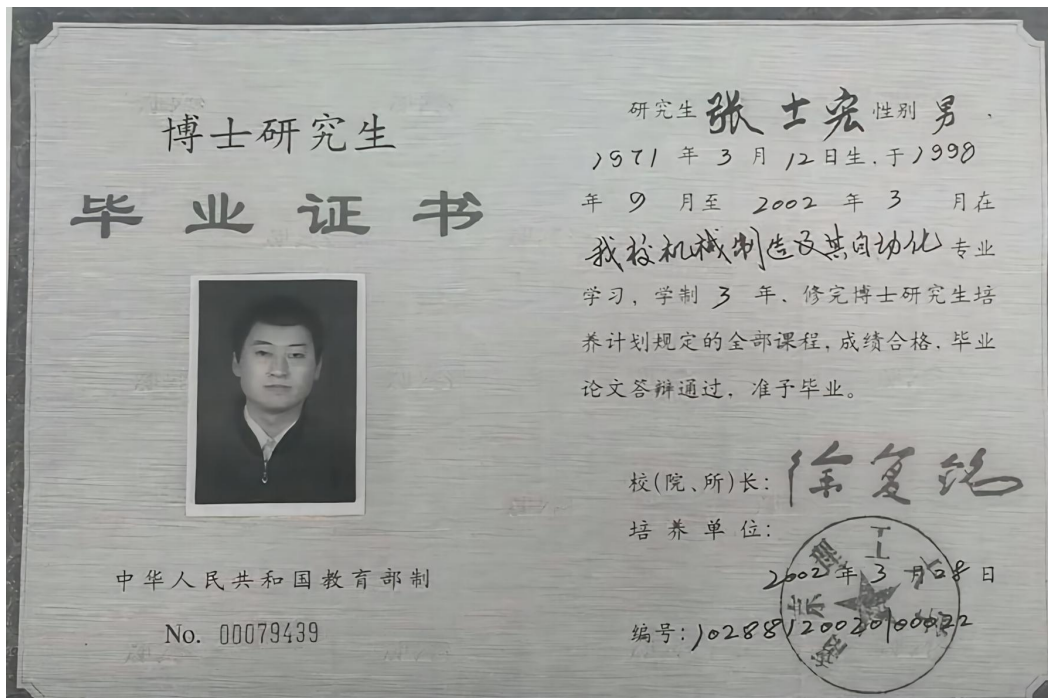 博士研究生
毕业证书
中华人民共和国教育部制
No. 00079439
研究生 张士宏 性别 男 .
1971 年 3 月 12 日生, 于 1998
年 9 月至 2002 年 3 月在
我校机械制造及其自动化 专业
学习, 学制 3 年、修完博士研究生培
养计划规定的全部课程, 成绩合格、毕业
论文答辩通过, 准予毕业。
校(院、所)长: 徐复铭
培养单位:
2002 年 3 月 28 日
编号: